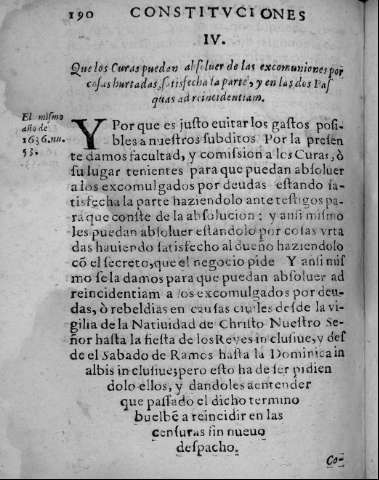 190 CONSTITVCIONES
IV.
Que los Curas puedan absoluer de las excomuniones por
cosas hurtadas, satisfecha la parte, y en las dos Pas
quas ad reincidentiam.
El mismo
año de
1636. nu.
53.
Y Por que es justo euitar los gastos posi-
bles a nuestros subditos. Por la presen
te damos facultad, y comission a los Curas, ò
su lugar tenientes para que puedan absoluer
a los excomulgados por deudas estando sa-
tisfecha la parte haziendolo ante testigos pa-
ra que conste de la absolucion: y ansi mismo
les puedan absoluer estandolo por cosas vrta
das hauiendo satisfecho al dueño haziendolo
cõ el secreto, que el negocio pide Y ansi mis
mo se la damos para que puedan absoluer ad
reincidentiam a los excomulgados por deu-
das, ò rebeldias en causas ciuiles desde la vi-
gilia de la Natiuidad de Christo Nuestro Se-
ñor hasta la fiesta de los Reyes inclusiue, y des
de el Sabado de Ramos hasta la Dominica in
albis inclusiue; pero esto ha de ser pidien
dolo ellos, y dandoles aentender
que passado el dicho termino
buelbẽ a reincidir en las
censuras sin nueuo
despacho.
Co-